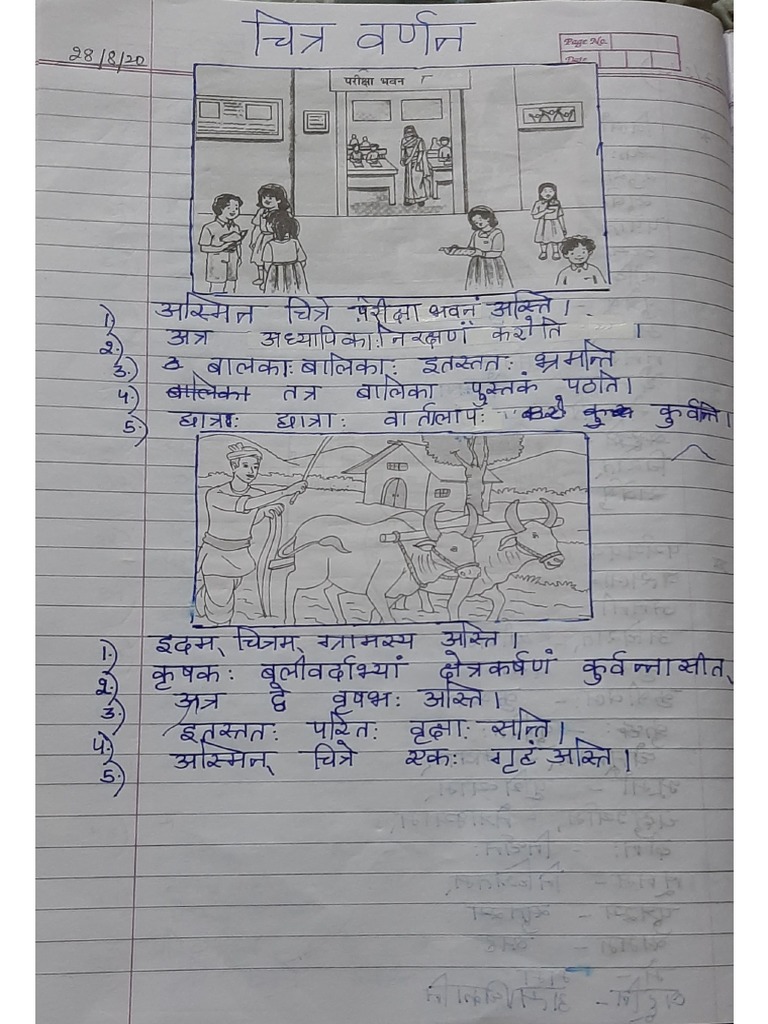 चित्र वर्णन
28/8/20
Page No.
Date
परीक्षा भवन
1.) अस्मिन चित्रे परीक्षा भवनं अस्ति।
2.) अत्र अध्यापिका निरक्षणं करोति।
3.) बालका: बालिका: इतस्तत: भ्रमन्ति
4.) बालिका तत्र बालिका पुस्तकं पठति।
5.) छात्रा: छात्रा: वार्तालाप: कुर्वन्ति।
1.) इदम् चित्रम् ग्रामस्य अस्ति।
2.) कृषक: बलीवर्दाभ्यां क्षेत्रकर्षणं कुर्वन्नासीत्
3.) अत्र द्वे वृषभ: अस्ति।
4.) इतस्तत: परित: वृक्षा: सन्ति।
5.) अस्मिन् चित्रे एक: गृहं अस्ति।